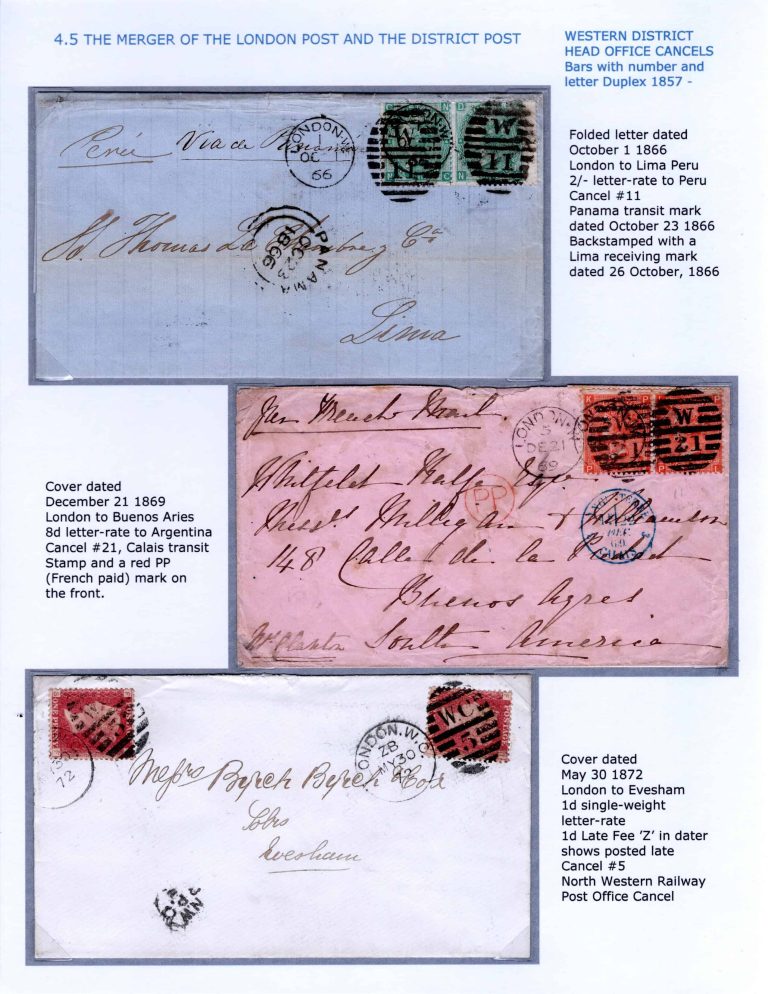 4.5 THE MERGER OF THE LONDON POST AND THE DISTRICT POST
WESTERN DISTRICT
HEAD OFFICE CANCELS
Bars with number and
letter Duplex 1857 -
Folded letter dated
October 1 1866
London to Lima Peru
2/- letter-rate to Peru
Cancel #11
Panama transit mark
dated October 23 1866
Backstamped with a
Lima receiving mark
dated 26 October, 1866
Via de
LONDON-W
1
OC 1
66
W
11
W
11
PANAMA
OC 23
1866
Thomas La
Lima
Cover dated
December 21 1869
London to Buenos Aries
8d letter-rate to Argentina
Cancel #21, Calais transit
Stamp and a red PP
(French paid) mark on
the front.
Per French Mail.
LONDON-W
5
DE 21
69
W
21
W
21
PP
CALAIS
148 Calle de la
Buenos Ayres
South America
W.C
5
72
LONDON.W.C
ZB
MY 30
72
W.C
5
Messrs Byrch Byrch & Cox
Evesham
Cover dated
May 30 1872
London to Evesham
1d single-weight
letter-rate
1d Late Fee ‘Z’ in dater
shows posted late
Cancel #5
North Western Railway
Post Office Cancel